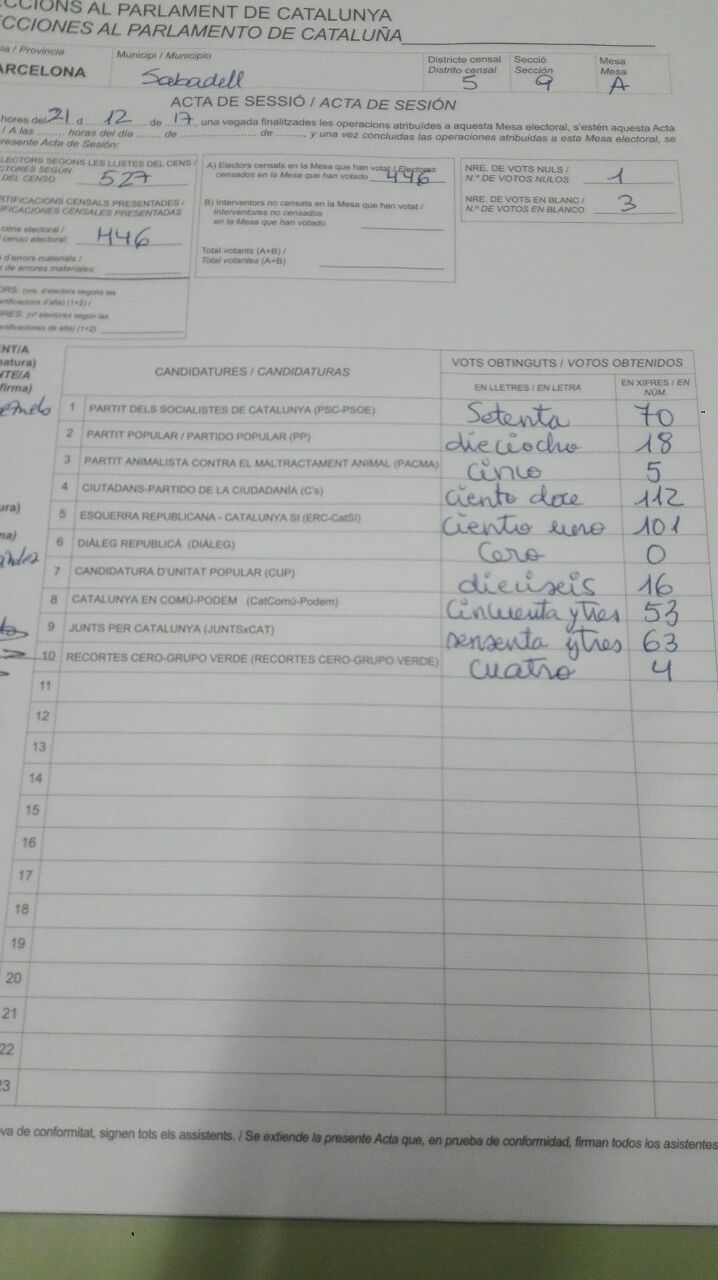 CCIONS AL PARLAMENT DE CATALUNYA
CCIONES AL PARLAMENTO DE CATALUÑA
ia / Provincia
ARCELONA
Municipi / Municipio
Sabadell
Districte censal
Distrito censal
5
Secció
Sección
9
Mesa
Mesa
A
ACTA DE SESSIÓ / ACTA DE SESIÓN
hores del 21 d 12 de 17, una vegada finalitzades les operacions atribuïdes a aquesta Mesa electoral, s'estén aquesta Acta
/ A las ......... horas del día ...... de ............ de ........, y una vez concluidas las operaciones atribuidas a esta Mesa electoral, se
resente Acta de Sesión:
LECTORS SEGONS LES LLISTES DEL CENS /
CTORES SEGÚN
DEL CENSO 527
RTIFICACIONS CENSALS PRESENTADES /
IFICACIONES CENSALES PRESENTADAS
cens electoral /
censo electoral: 446
d'errors materials /
de errores materiales:
ORS: (nre. d'electors segons les
ertificacions d'alta) (1+2) /
ORES: (nº electores según las
ertificaciones de alta) (1+2)
A) Electors censats en la Mesa que han votat / Electores
censados en la Mesa que han votado 446
B) Interventors no censats en la Mesa que han votat /
Interventores no censados
en la Mesa que han votado
Total votants (A+B) /
Total votantes (A+B)
NRE. DE VOTS NULS /
N.º DE VOTOS NULOS 1
NRE. DE VOTS EN BLANC /
N.º DE VOTOS EN BLANCO 3
ENT/A
natura)
NTE/A
firma)
ura)
na)
CANDIDATURES / CANDIDATURAS
VOTS OBTINGUTS / VOTOS OBTENIDOS
EN LLETRES / EN LETRA
EN XIFRES / EN
NÚM.
1 PARTIT DELS SOCIALISTES DE CATALUNYA (PSC-PSOE) Setenta 70
2 PARTIT POPULAR / PARTIDO POPULAR (PP) dieciocho 18
3 PARTIT ANIMALISTA CONTRA EL MALTRACTAMENT ANIMAL (PACMA) cinco 5
4 CIUTADANS-PARTIDO DE LA CIUDADANÍA (C's) ciento doce 112
5 ESQUERRA REPUBLICANA - CATALUNYA SI (ERC-CatSí) ciento uno 101
6 DIÀLEG REPUBLICÀ (DIÀLEG) Cero 0
7 CANDIDATURA D'UNITAT POPULAR (CUP) dieciseis 16
8 CATALUNYA EN COMÚ-PODEM (CatComú-Podem) Cincuenta y tres 53
9 JUNTS PER CATALUNYA (JUNTSxCAT) sensenta y tres 63
10 RECORTES CERO-GRUPO VERDE (RECORTES CERO-GRUPO VERDE) Cuatro 4
11
12
13
14
15
16
17
18
19
20
21
22
23
va de conformitat, signen tots els assistents. / Se extiende la presente Acta que, en prueba de conformidad, firman todos los asistentes